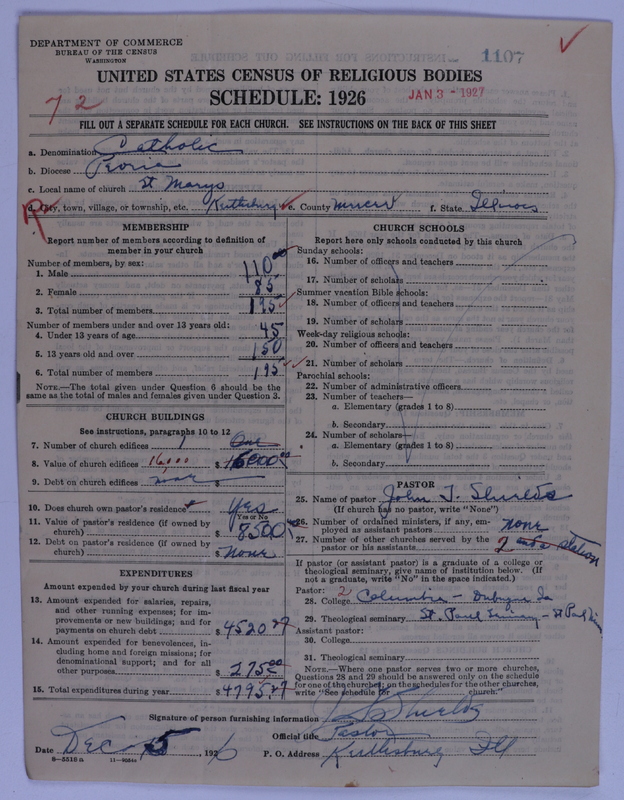 DEPARTMENT OF COMMERCE
BUREAU OF THE CENSUS
WASHINGTON
1107
UNITED STATES CENSUS OF RELIGIOUS BODIES
SCHEDULE: 1926
JAN 3 - 1927
72
FILL OUT A SEPARATE SCHEDULE FOR EACH CHURCH. SEE INSTRUCTIONS ON THE BACK OF THIS SHEET
a. Denomination Catholic
b. Diocese Peoria
c. Local name of church St Marys
d. City, town, village, or township, etc. Keithsburg e. County Mercer f. State Illinois
MEMBERSHIP
Report number of members according to definition of member in your church
Number of members, by sex:
1. Male 110
2. Female 85
3. Total number of members 195
Number of members under and over 13 years old:
4. Under 13 years of age 45
5. 13 years old and over 150
6. Total number of members 195
NOTE.—The total given under Question 6 should be the same as the total of males and females given under Question 3.
CHURCH BUILDINGS
See instructions, paragraphs 10 to 12
7. Number of church edifices 1 One
8. Value of church edifices 16,000 $
9. Debt on church edifices none $
10. Does church own pastor's residence? Yes
Yes or No
11. Value of pastor's residence (if owned by church) $ 8500
12. Debt on pastor's residence (if owned by church) $ None
EXPENDITURES
Amount expended by your church during last fiscal year
13. Amount expended for salaries, repairs, and other running expenses; for improvements or new buildings; and for payments on church debt $ 4520.27
14. Amount expended for benevolences, including home and foreign missions; for denominational support; and for all other purposes $ 275.00
15. Total expenditures during year $ 4795.27
CHURCH SCHOOLS
Report here only schools conducted by this church
Sunday schools:
16. Number of officers and teachers
17. Number of scholars
Summer vacation Bible schools:
18. Number of officers and teachers
19. Number of scholars
Week-day religious schools:
20. Number of officers and teachers
21. Number of scholars
Parochial schools:
22. Number of administrative officers
23. Number of teachers—
a. Elementary (grades 1 to 8)
b. Secondary
24. Number of scholars—
a. Elementary (grades 1 to 8)
b. Secondary
PASTOR
25. Name of pastor John J. Shields
(If church has no pastor, write "None")
26. Number of ordained ministers, if any, employed as assistant pastors none
27. Number of other churches served by the pastor or his assistants 2 and a station
If pastor (or assistant pastor) is a graduate of a college or theological seminary, give name of institution below. (If not a graduate, write "No" in the space indicated.)
Pastor: 2
28. College Columbia - Dubuque Ia
29. Theological seminary St. Paul Seminary - St Paul Minn
Assistant pastor:
30. College
31. Theological seminary
NOTE.—Where one pastor serves two or more churches, Questions 28 and 29 should be answered only on the schedule for one of the churches; on the schedules for the other churches, write "See schedule for church."
Signature of person furnishing information J J Shields
Official title Pastor
Date Dec 15, 1926 P. O. Address Keithsburg Ill
8—5518a 11—9054